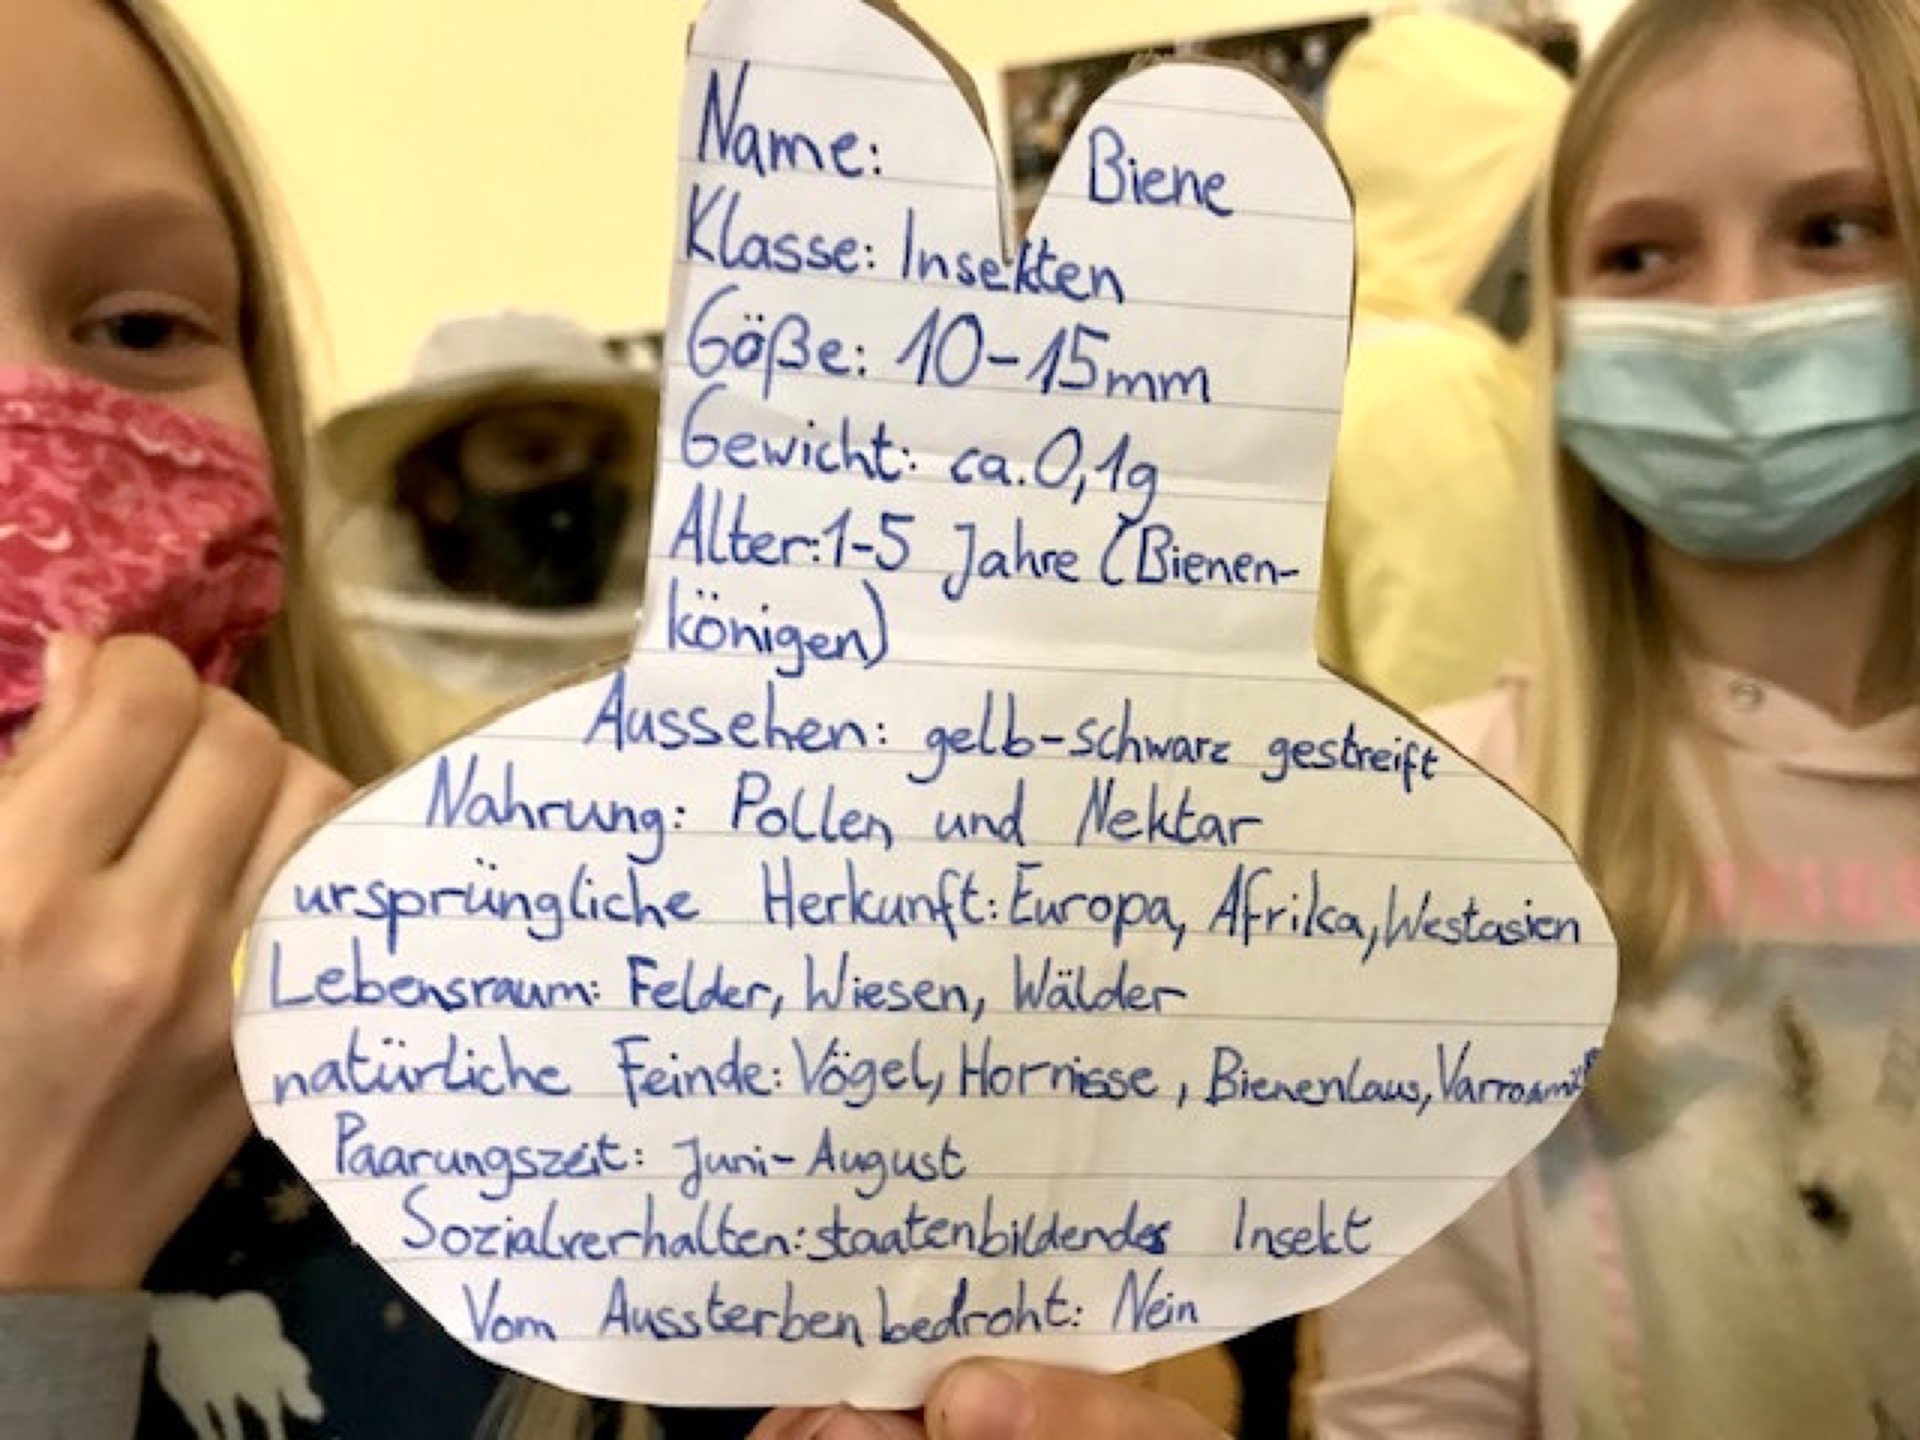 Name: Biene
Klasse: Insekten
Göße: 10-15mm
Gewicht: ca. 0,1g
Alter: 1-5 Jahre (Bienen-
königen)
Aussehen: gelb-schwarz gestreift
Nahrung: Pollen und Nektar
ursprüngliche Herkunft: Europa, Afrika, Westasien
Lebensraum: Felder, Wiesen, Wälder
natürliche Feinde: Vögel, Hornisse, Bienenlaus,
Paarungszeit: Juni-August
Sozialverhalten: staatenbildendes Insekt
Vom Aussterben bedroht: Nein